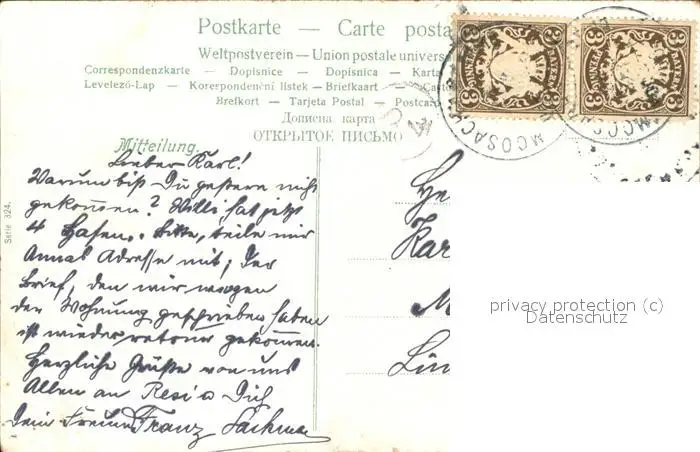 Postkarte — Carte posta
Weltpostverein — Union postale univers
Correspondenzkarte — Dopisnice — Dopisnica — Karta
Levelező-Lap — Korerpondenční listek — Briefkaart — Cart
Brefkort — Tarjeta Postal — Postcard
Дописна карта
ОТКРЫТОЕ ПИСЬМО
3 3 3 3
MOOSACH
MOOSACH
Mitteilung.
Lieber Karl!
Warum bist Du gestern nicht
gekommen? Willi hat jetzt
4 Hasen. Bitte, teile mir
Annas Adresse mit; der
Brief, den wir wegen
der Wohnung geschrieben haben
ist wieder retour gekommen.
Herzliche Grüße von uns
Allen an Resi u Dich
Dein Freund Franz
He
Kar
M
Lin
Serie 324.
privacy protection (c)
Datenschutz